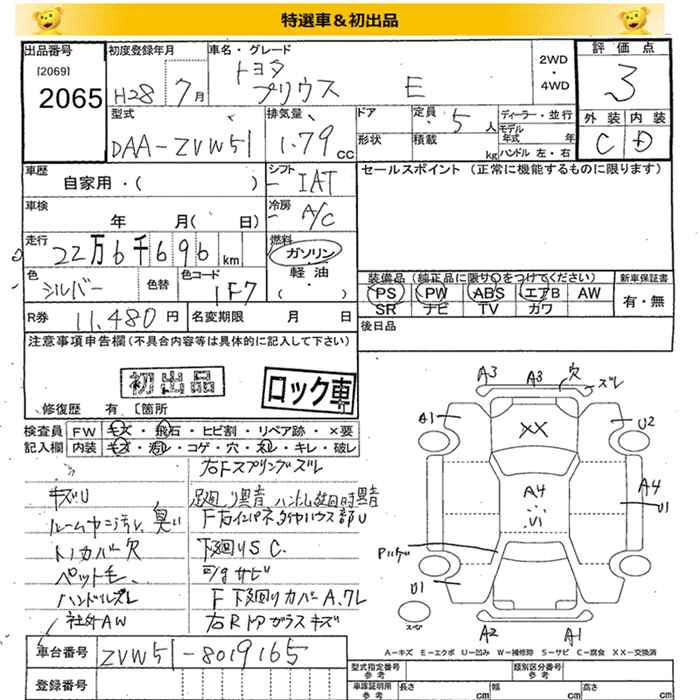 特選車&初出品
出品番号
[2069]
2065
初度登録年月
H28 7月
車名・グレード
トヨタ
プリウス E
2WD
・
4WD
評価点
3
型式
DAA-ZVW51
排気量
1.79 cc
ドア
形状
定員 5人
積載 kg
ディーラー・並行
モデル
年式 年
ハンドル 左・右
外装 内装
C D
車歴
自家用・( )
シフト
IAT
セールスポイント (正常に機能するものに限ります)
車検
年 月( 日)
冷房
A/C
走行
22万6千696km
燃料
ガソリン
軽油
( )
色
シルバー
色替
色コード
1F7
装備品 (純正品に限り○をつけてください)
新車保証書
PS PW ABS エアB AW
SR ナビ TV カワ
有・無
R券 11,480円
名変期限 月 日
後日品
注意事項申告欄(不具合内容等は具体的に記入して下さい)
初出品
ロック車
修復歴 有 [箇所
検査員
記入欄
FW キズ・飛石・ヒビ割・リペア跡・×要
内装 キズ・汚レ・コゲ・穴・ネレ・キレ・破レ
右Fスプリングズレ
キズU
ルーム中ニ汚レ、臭い
トノカバー欠
ペット毛
ハンドルズレ
社外AW
F右インパネ タイヤハウス部U
下廻りSC
F下廻りカバーA.ワレ
A3 A3 欠 ズレ
A1 U2
XX
A4
U1
A4
U1
U1
A2 A1
スペア
A-キズ E-エクボ U-凹み W-補修跡 S-サビ C-腐食 XX-交換済
車台番号 ZVW51-8019165
登録番号
型式指定番号
参考
類別区分番号
参考
車庫証明用
参考
長さ cm
幅 cm
高さ cm